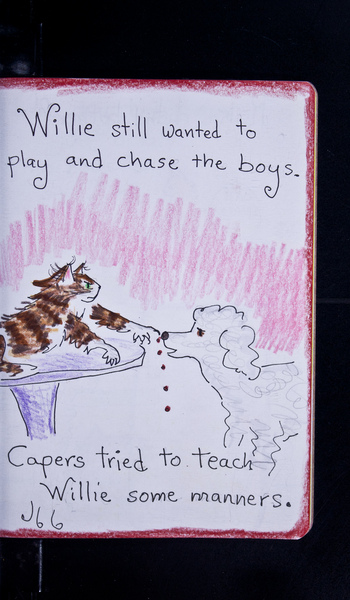 Willie still wanted to
play and chase the boys.
Capers tried to teach
Willie some manners.